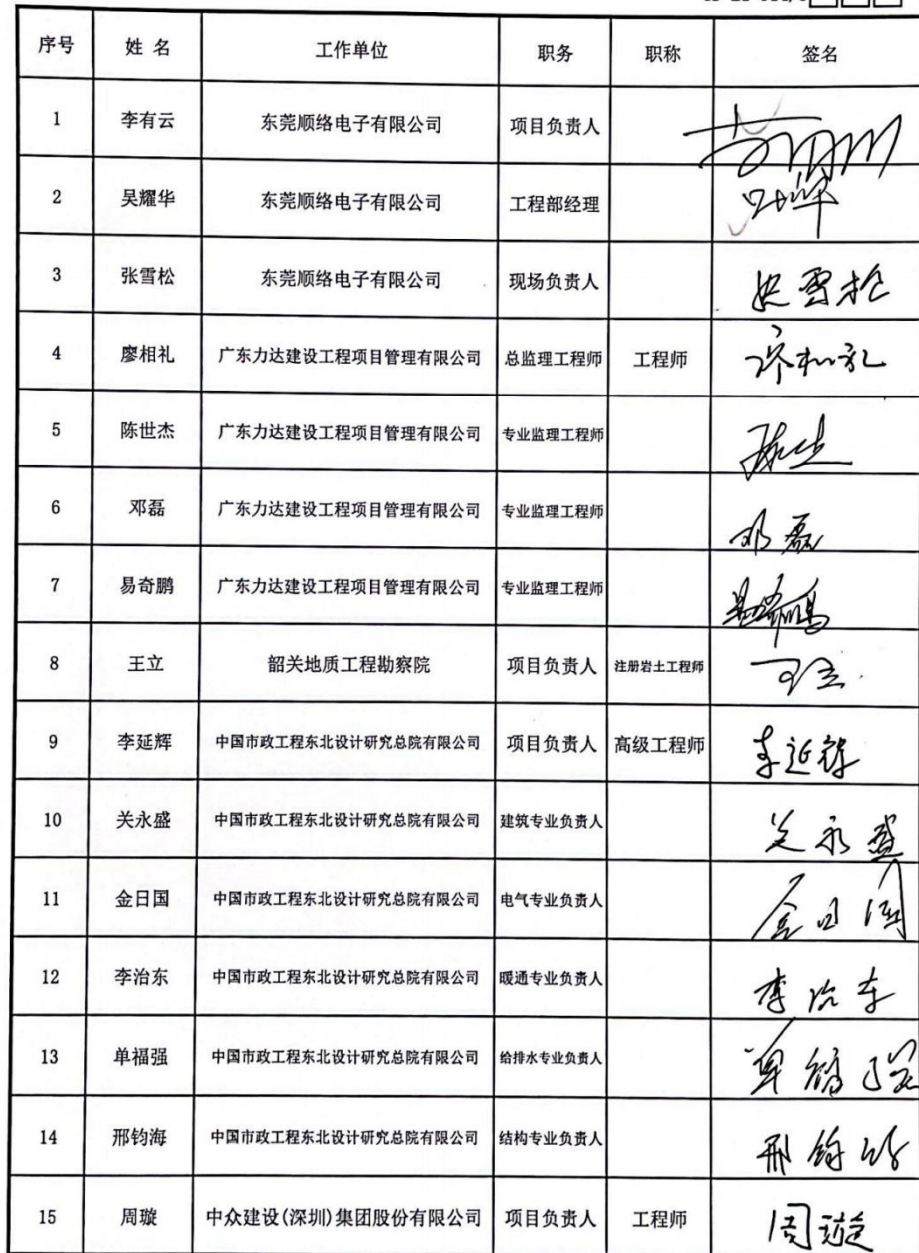 序号 姓名 工作单位 职务 职称 签名
1 李有云 东莞顺络电子有限公司 项目负责人
2 吴耀华 东莞顺络电子有限公司 工程部经理
3 张雪松 东莞顺络电子有限公司 现场负责人
4 廖相礼 广东力达建设工程项目管理有限公司 总监理工程师 工程师
5 陈世杰 广东力达建设工程项目管理有限公司 专业监理工程师
6 邓磊 广东力达建设工程项目管理有限公司 专业监理工程师 邓磊
7 易奇鹏 广东力达建设工程项目管理有限公司 专业监理工程师
8 王立 韶关地质工程勘察院 项目负责人 注册岩土工程师 王立
9 李延辉 中国市政工程东北设计研究总院有限公司 项目负责人 高级工程师 李延辉
10 关永盛 中国市政工程东北设计研究总院有限公司 建筑专业负责人 关永盛
11 金日国 中国市政工程东北设计研究总院有限公司 电气专业负责人 金日国
12 李治东 中国市政工程东北设计研究总院有限公司 暖通专业负责人 李治东
13 单福强 中国市政工程东北设计研究总院有限公司 给排水专业负责人 单福强
14 邢钧海 中国市政工程东北设计研究总院有限公司 结构专业负责人 邢钧海
15 周璇 中众建设(深圳)集团股份有限公司 项目负责人 工程师 周璇